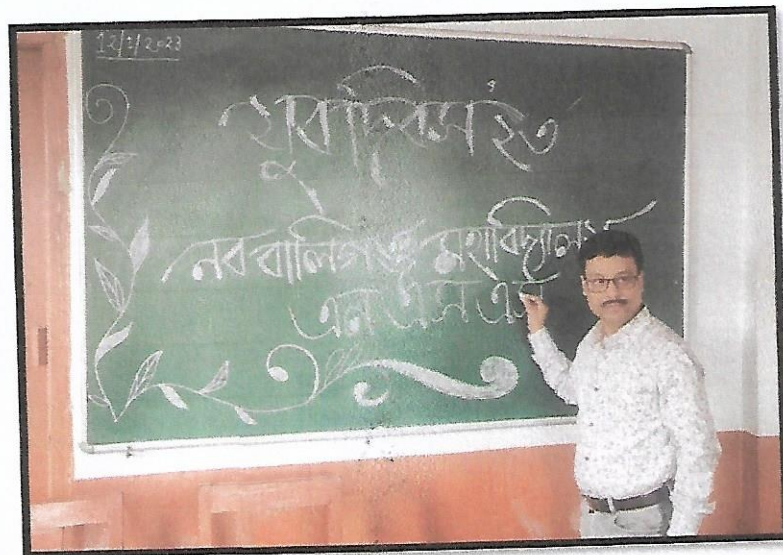 12/1/2023
যুব দিবস ২৩
নব বালিগঞ্জ মহাবিদ্যালয়
এন এস এস